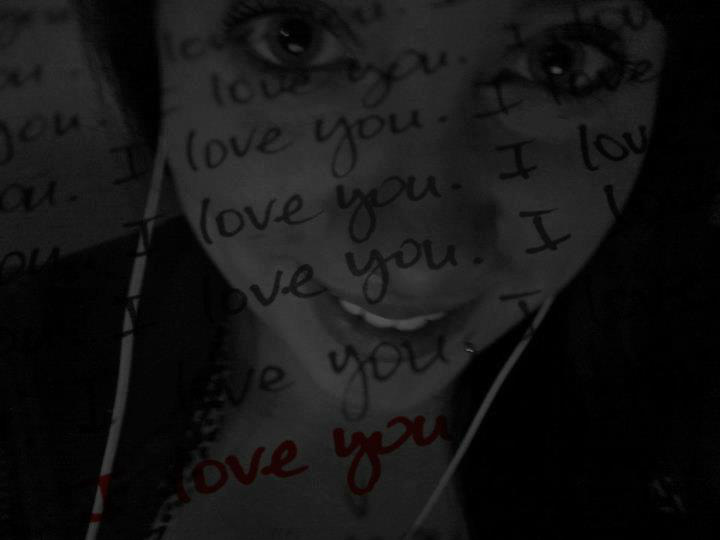 you
ou. love you.
you. I love you. I lov
ou. I love you. I love
ou. I love you. I lov
ou. I love you. I l
I love you. I love
I love you